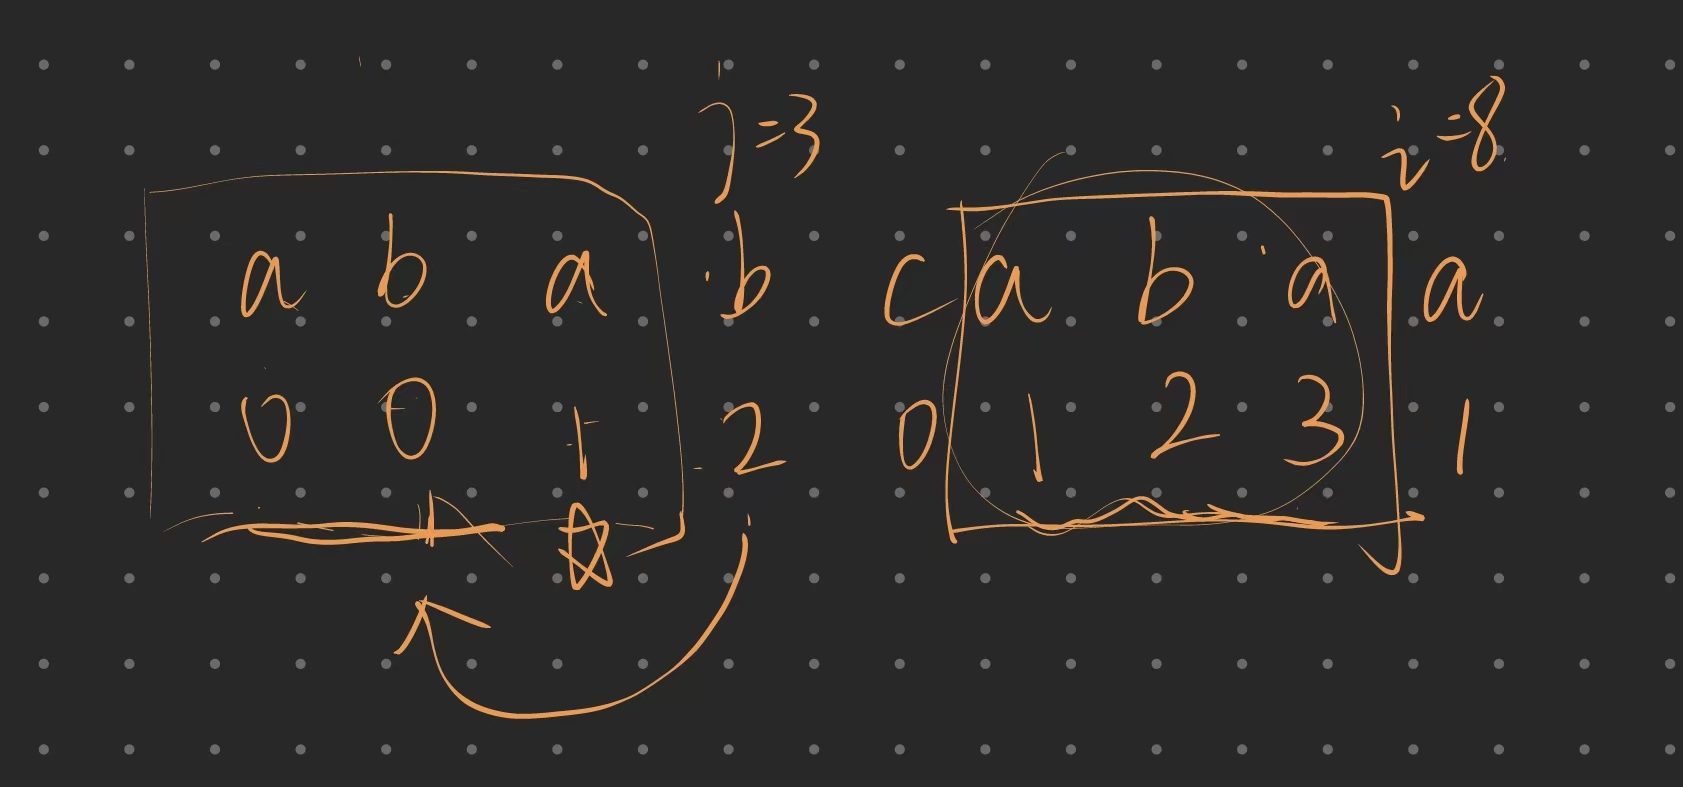 j=3 i=8
a b a b c a b a a
0 0 1 2 0 1 2 3 1